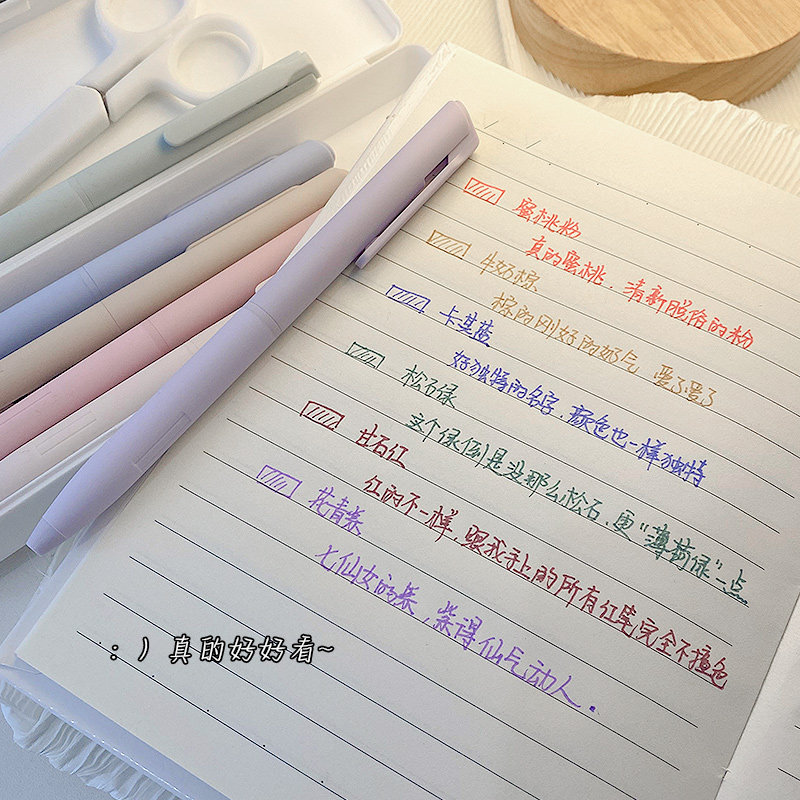 蜜桃粉
真的蜜桃，清新脱俗的粉
牛奶棕
棕的刚好的奶气 爱了爱了
卡其蓝
好独特的名字，颜色也一样独特
松石绿
这个绿倒是没那么松石，更“薄荷绿”一点
甘石红
红的不一样，跟我手上的所有红笔完全不撞色
花青紫
七仙女的紫，紫得仙气动人.
: ) 真的好好看~